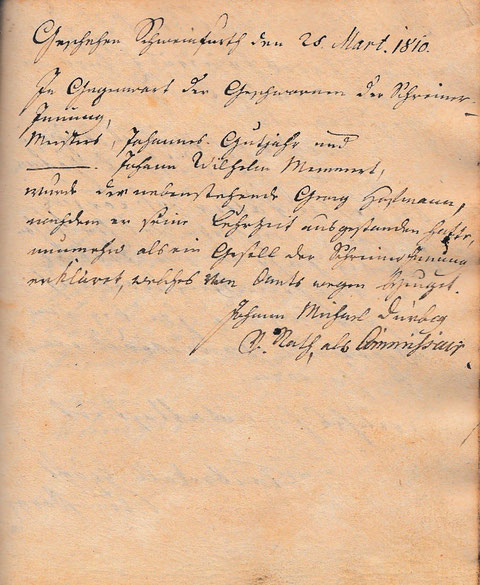 Geschehen Schweinfurth den 28 Mart. 1810.
In Gegenwart der Geschwornen der Schreiner-
Innung,
Meisters, Johannes Gutjahr und
——— . Johann Wilhelm Memmert,
wurde der nebenstehende Georg Hofmann,
nachdem er seine Lehrzeit ausgestanden hatte,
nunmehro als ein Gesell der Schreiner Innung
erkläret, welches von Amts wegen bezeuget.
Johann Michael
Rath, als Commissair